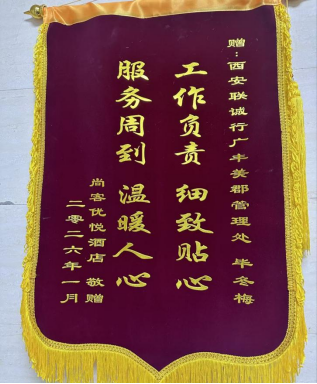 赠：西安联诚行广丰美郡管理处 毕冬梅
工作负责 细致贴心
服务周到 温暖人心
尚客优悦酒店 敬赠
二零二六年一月